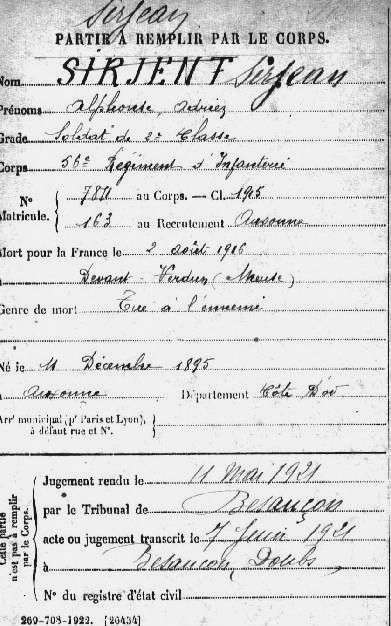 Sirjean
PARTIE À REMPLIR PAR LE CORPS.
Nom SIRJENT Sirjean
Prénoms Alphonse, Adrien
Grade Soldat de 2e Classe
Corps 56e Régiment d'Infanterie
N° Matricule. 7811 au Corps. — Cl. 1915
163 au Recrutement Auxonne
Mort pour la France le 2 août 1916
à Devant-Verdun (Meuse)
Genre de mort Tué à l'ennemi
Né le 11 Décembre 1895
à Auxonne Département Côte D'or
Arrt municipal (pr Paris et Lyon),
à défaut rue et N°.
Cette partie
n'est pas à remplir
par le Corps.
Jugement rendu le 11 Mai 1921
par le Tribunal de Besançon
acte ou jugement transcrit le 7 Juin 1921
à Besançon, Doubs
N° du registre d'état civil
269-708-1922. [26434]